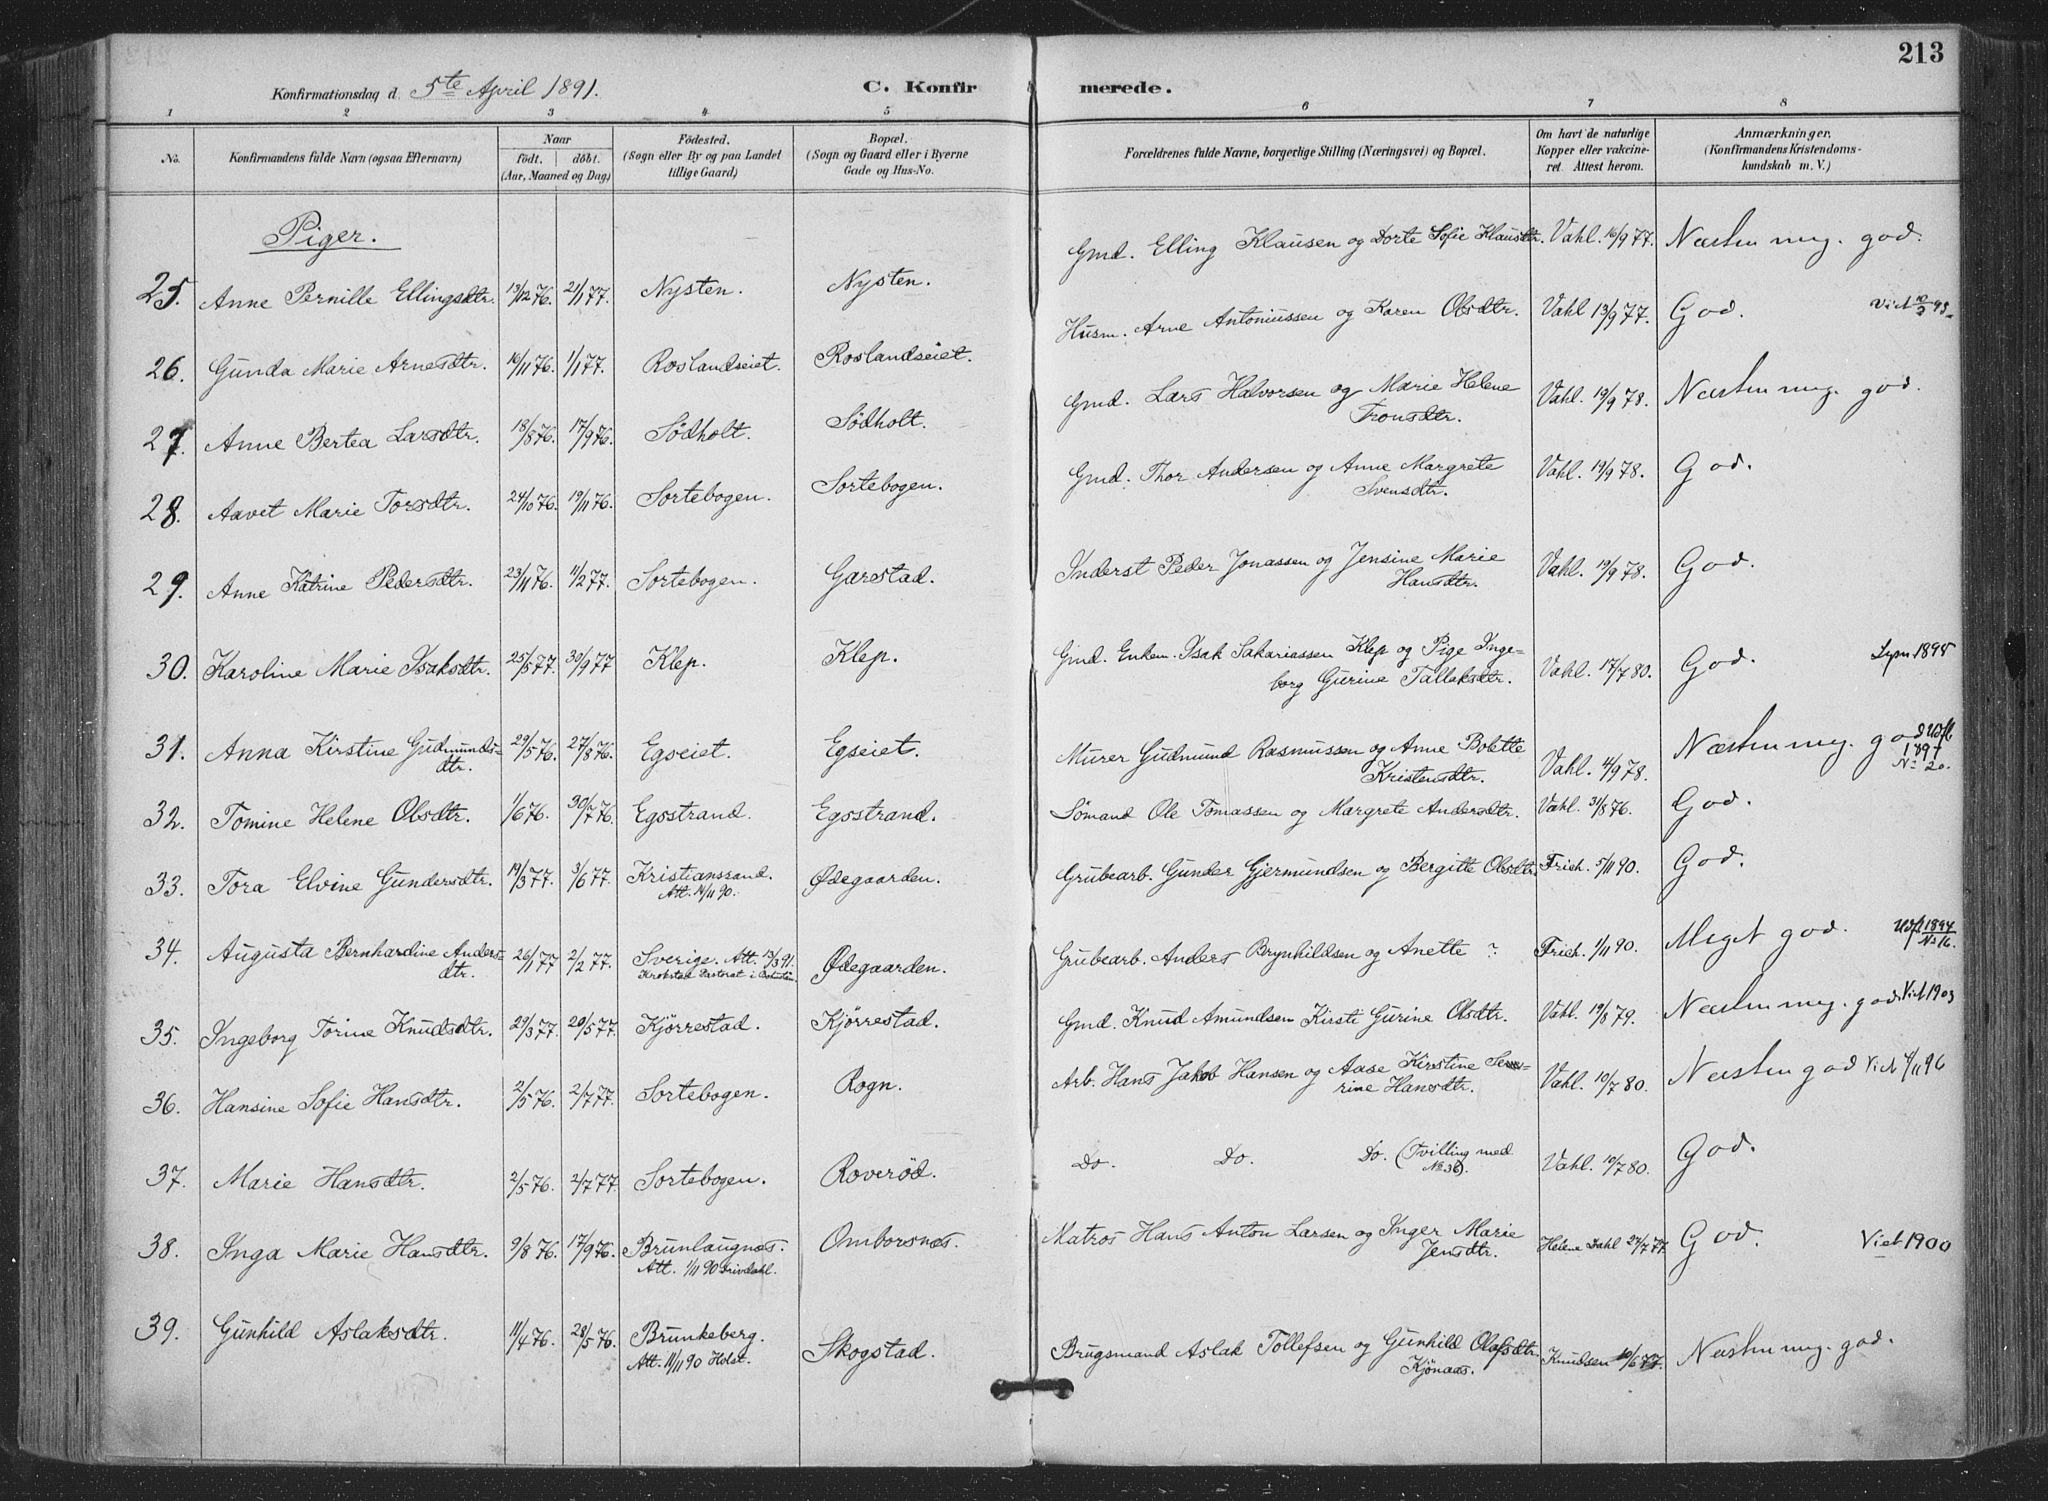 213
Konfirmationsdag d. 5te April 1891. C. Konfirmerede.
1 2 3 4 5 6 7 8
No. Konfirmandens fulde Navn (ogsaa Efternavn) Naar født. døbt. (Aar, Maaned og Dag) Fødested. (Sogn eller By og paa Landet tillige Gaard) Bopæl. (Sogn og Gaard eller i Byerne Gade og Hus-No. Forældrenes fulde Navne, borgerlige Stilling (Næringsvei) og Bopæl. Om havt de naturlige Kopper eller vakcineret. Attest herom. Anmærkninger. (Konfirmandens Kristendomskundskab m. V.)
Piger.
25. Anne Pernille Ellingsdtr. 13/12 76. 21/1 77. Nysten. Nysten. Gmd. Elling Klausen og Dorte Sofie Klausdtr. Vahl. 16/9 77. Næsten meg. god.
26. Gunda Marie Arnesdtr. 16/11 76. 1/1 77. Roslandseiet. Roslandseiet. Husm. Arne Antoniussen og Karen Olsdtr. Vahl 13/9 77. God. Viet
27. Anne Bertea Larsdtr. 18/8 76. 17/9 76. Södholt. Södholt. Gmd. Lars Halvorsen og Marie Helene Tronsdtr. Vahl. 19/9 78. Næsten meg. god.
28. Aavet Marie Torsdtr. 24/10 76. 19/11 76. Sortebogen. Sortebogen. Gmd. Thor Andersen og Anne Margrete Svensdtr. Vahl. 19/9 78. God.
29. Anne Katrine Pedersdtr. 23/11 76. 11/2 77. Sortebogen. Garestad. Inderst Peder Jonassen og Jensine Marie Hansdtr. Vahl. 19/9 78. God.
30. Karoline Marie Isaksdtr. 25/5 77. 30/9 77 Klep. Klep. Gmd. Enkem. Isak Sakariassen Klep og Pige Ingeborg Gurine Tallaksdtr. Vahl. 17/7 80. God. 1895
31. Anna Kirstine Gudmundsdtr. 29/5 76. 27/8 76. Egseiet. Egseiet. Murer Gudmund Rasmussen og Anne Bolette Kristensdtr. Vahl. 4/9 78. Næsten meg. god Udfl. 1897 No 20.
32. Tomine Helene Olsdtr. 1/6 76. 30/7 76. Egsstrand. Egsstrand. Sömand Ole Tomassen og Margrete Andersdtr. Vahl. 31/8 76. God.
33. Tora Elvine Gundersdtr. 19/3 77. 3/6 77. Kristianssand. Att. 14/11 90. Ødegaarden. Grubearb. Gunder Gjermundsen og Bergitte Olsdtr. Frich. 5/11 90. God.
34. Augusta Bernhardine Andersdtr. 26/1 77 2/2 77. Sverige. Att. 13/3 91. Krokstad Pastorat i Ødegaarden. Grubearb. Anders Brynhildsen og Anette ? Frich. 1/11 90. Meget god. Udfl 1894 No 16.
35. Ingeborg Torine Knudsdtr. 29/3 77. 20/5 77. Kjörrestad. Kjørrestad. Gmd. Knud Amundsen Kirsti Gurine Olsdtr. Vahl. 19/8 79. Næsten meg. god Viet 1903
36. Hansine Sofie Hansdtr. 2/5 76. 2/7 77. Sortebogen. Rogn. Arb. Hans Jakob Hansen og Aase Kirstine Serine Hansdtr. Vahl. 10/7 80. Næsten god Viet 4/11 96
37. Marie Hansdtr. 2/5 76. 2/7 77. Sortebogen. Roveröd. Do. Do. Do. (Tvilling med No. 36). Vahl. 10/7 80. God.
38. Inga Marie Hansdtr. 9/8 76. 17/9 76. Brunlaugnæs. Att. 1/11 90 Omborsnæs. Matros Hans Anton Larsen og Inger Marie Jensdtr. Helene Dahl 27/7 77. God. Viet 1900
39. Gunhild Aslaksdtr. 11/4 76. 28/5 76. Brunkeberg. Att. 11/11 90 Holst. Skogstad. Brugsmand Aslak Tollefsen og Gunhild Olafsdtr. Kjönaas. Knudsen 10/6 77. Næsten meg. god.